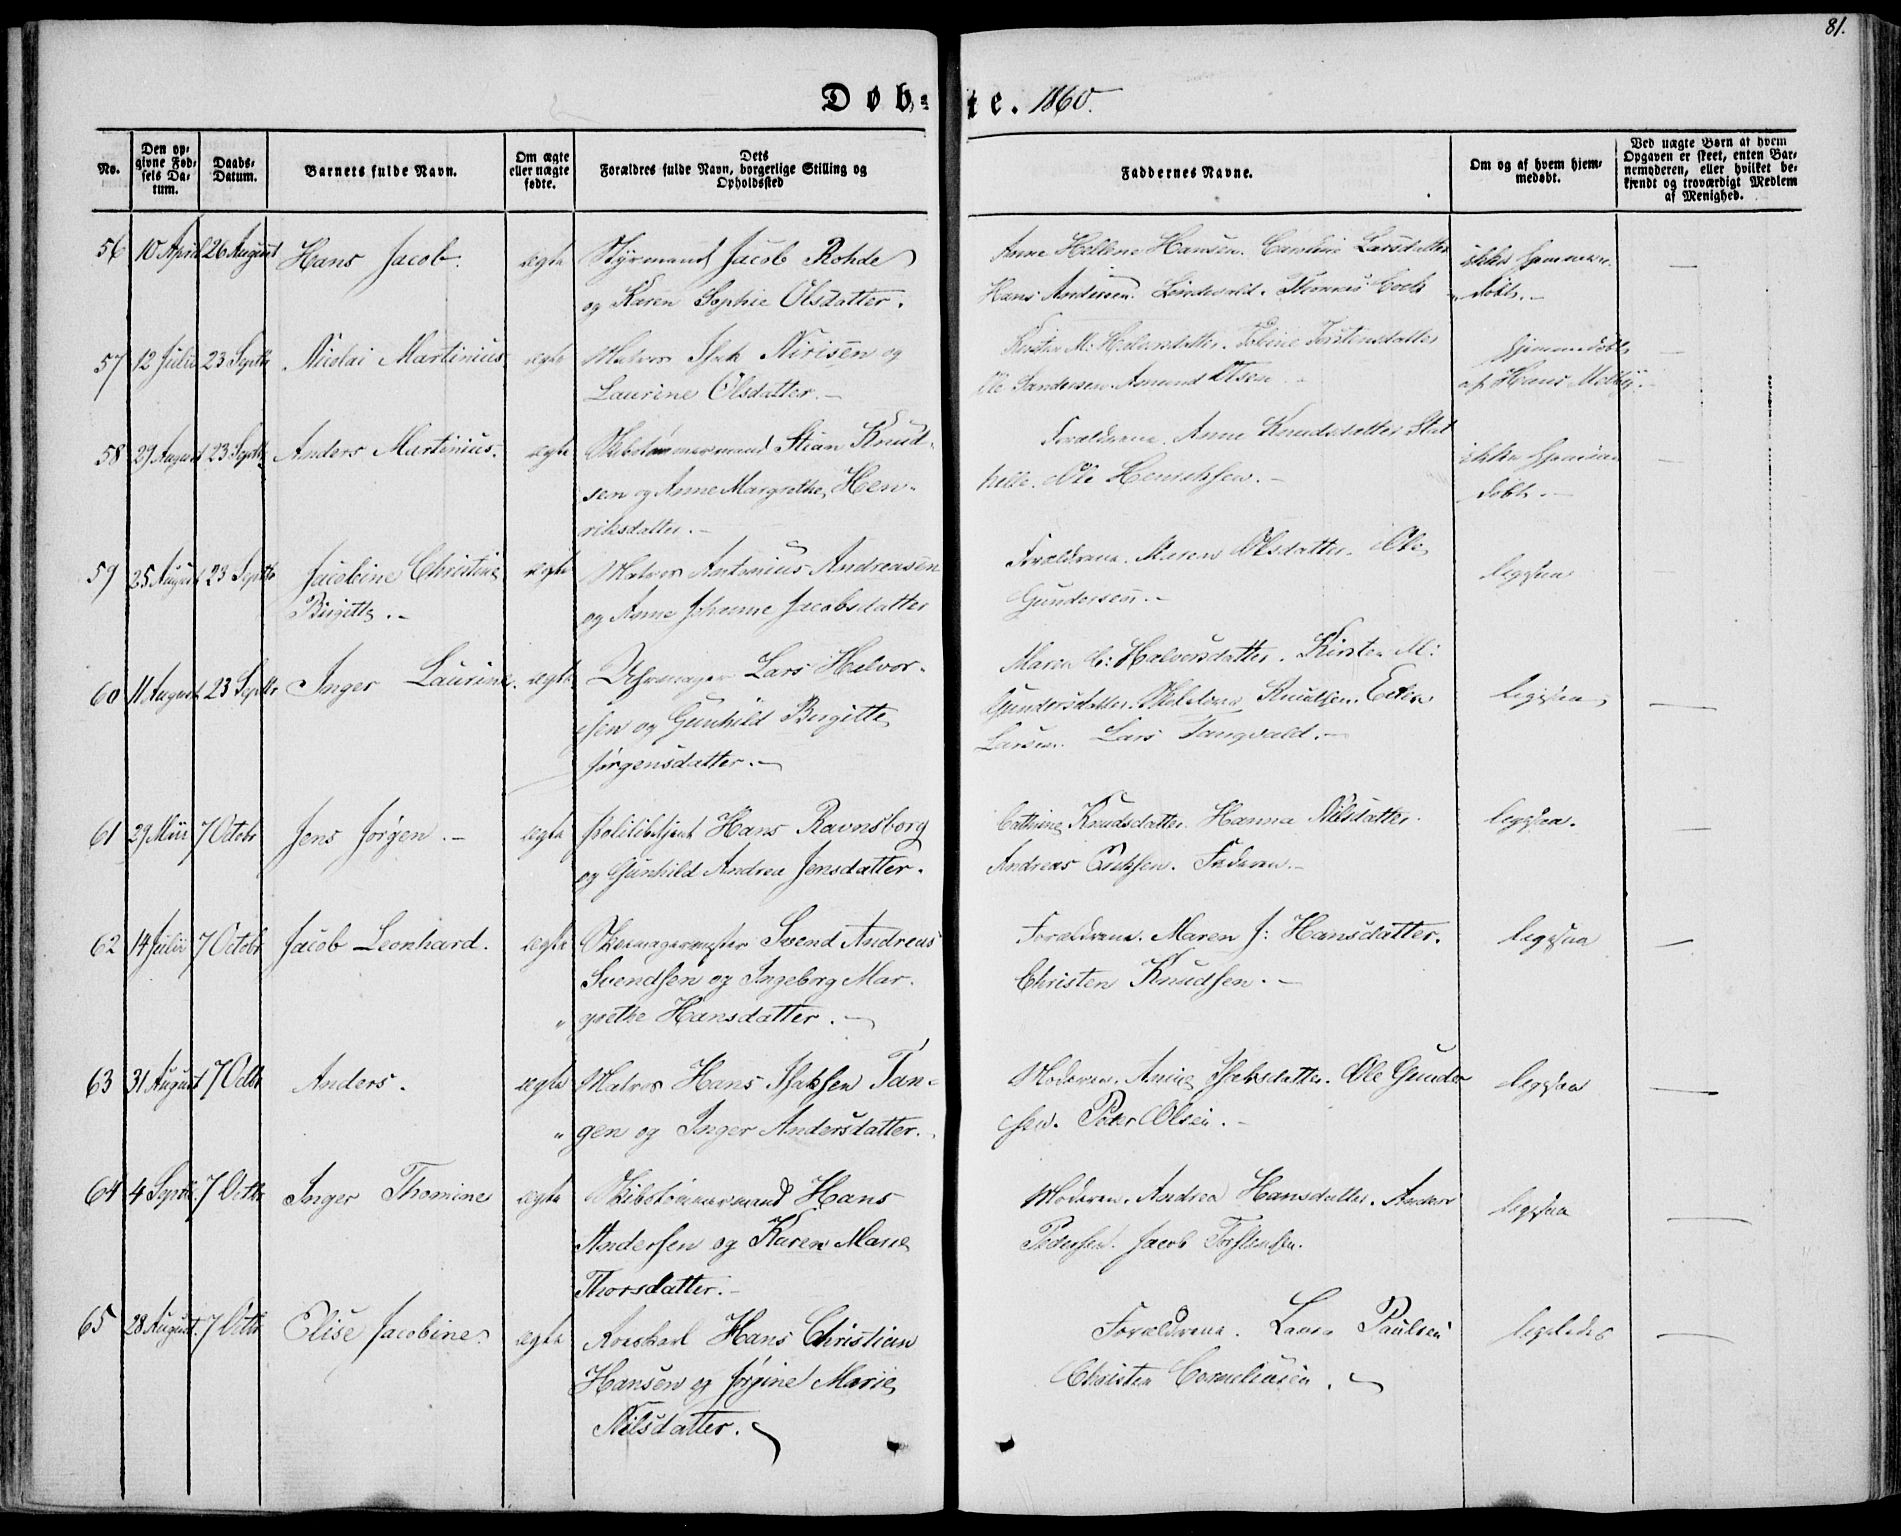 81.
Døb-te. 1860.
No.
Den opgivne Fødsels Datum.
Daabs-Datum.
Barnets fulde Navn.
Om ægte eller uægte fødte.
Dets Forældres fulde Navn, borgerlige Stilling og Opholdssted
Faddernes Navne.
Om og af hvem hjemmedøbt.
Ved uægte Børn af hvem Opgaven er skeet, enten Barnemoderen, eller hvilket bekjendt og troværdigt Medlem af Menighed.
56 10 April 26 August Hans Jacob. ægte Styrmand Jacob Rohde Anne Hellene Hansen. Caroline Larsdatter ikke hjemme-
og Karen Sophie Olsdatter. Hans Andersen. Thomas døbt. -
57 12 Julii 23 Septbr Nicolai Martinius. ægte Matros Isak Nirisen og Kirsten M: Halvorsdatter. Torstensdatter hjemmedøbt
Laurine Olsdatter. - Ole Sandersen. Amund Olsen af Hans Melby. -
58 29 August 23 Septbr Anders Martinius. ægte Skibstømmermand Stian Knud- Forældrene. Anne Knudsdatter Stat ikke hjemme
sen og Anne Margrethe Hen- helle. Ole Henriksen. - døbt. -
riksdatter. -
59 25 August 23 Septbr Jacobine Christine ægte Matros Antonius Andreasen Forældrene. Maren Olsdatter. Ole ligesaa
Birgitte. - og Anne Johanne Jacobsdatter Gundersen. -
60 11 August 23 Septbr Inger Laurine. ægte Uhrmager Lars Halvor- Maren C: Halvorsdatter. Kirsten M:
sen og Gunhild Birgitte Gundersdatter. Knudsen. ligesaa
Jørgensdatter. - Larsen. Lars Tangvald. -
61 29 Mii 7 Octobr Jens Jørgen. - ægte Politibetjent Hans Ravnsborg Cathrine Knudsdatter. Hanna Nilsdatter. ligesaa.
og Gunhild Andrea Jensdatter. Andreas Eriksen. Faderen. -
62 14 Julii 7 Octobr Jacob Leonhard. ægte Skomagermester Svend Andreas Forældrene. Maren J: Hansdatter. ligesaa
Svendsen og Ingeborg Mar- Christen Knudsen. -
" grethe Hansdatter. -
63 31 August 7 Octbr Anders. ægte Matros Hans Isaksen Tan- Moderen. Anne Isaksdatter. Ole Gunder ligesaa
" gen og Inger Andersdatter. - sen. Peder Olsen. -
64 4 Septbr 7 Octbr Inger Thomine ægte Skibstømmermand Hans Moderen. Andrea Hansdatter. Anders ligesaa
Andersen og Karen Marie Pedersen. Jacob Torstensen.
Thorsdatter. -
65 28 August. 7 Octbr Elise Jacobine. ægte Roeskarl Hans Christian Forældrene. Laura Paulsen ligeledes
Hansen og Jørgine Marie Christen Corneliusen. -
Nilsdatter. -